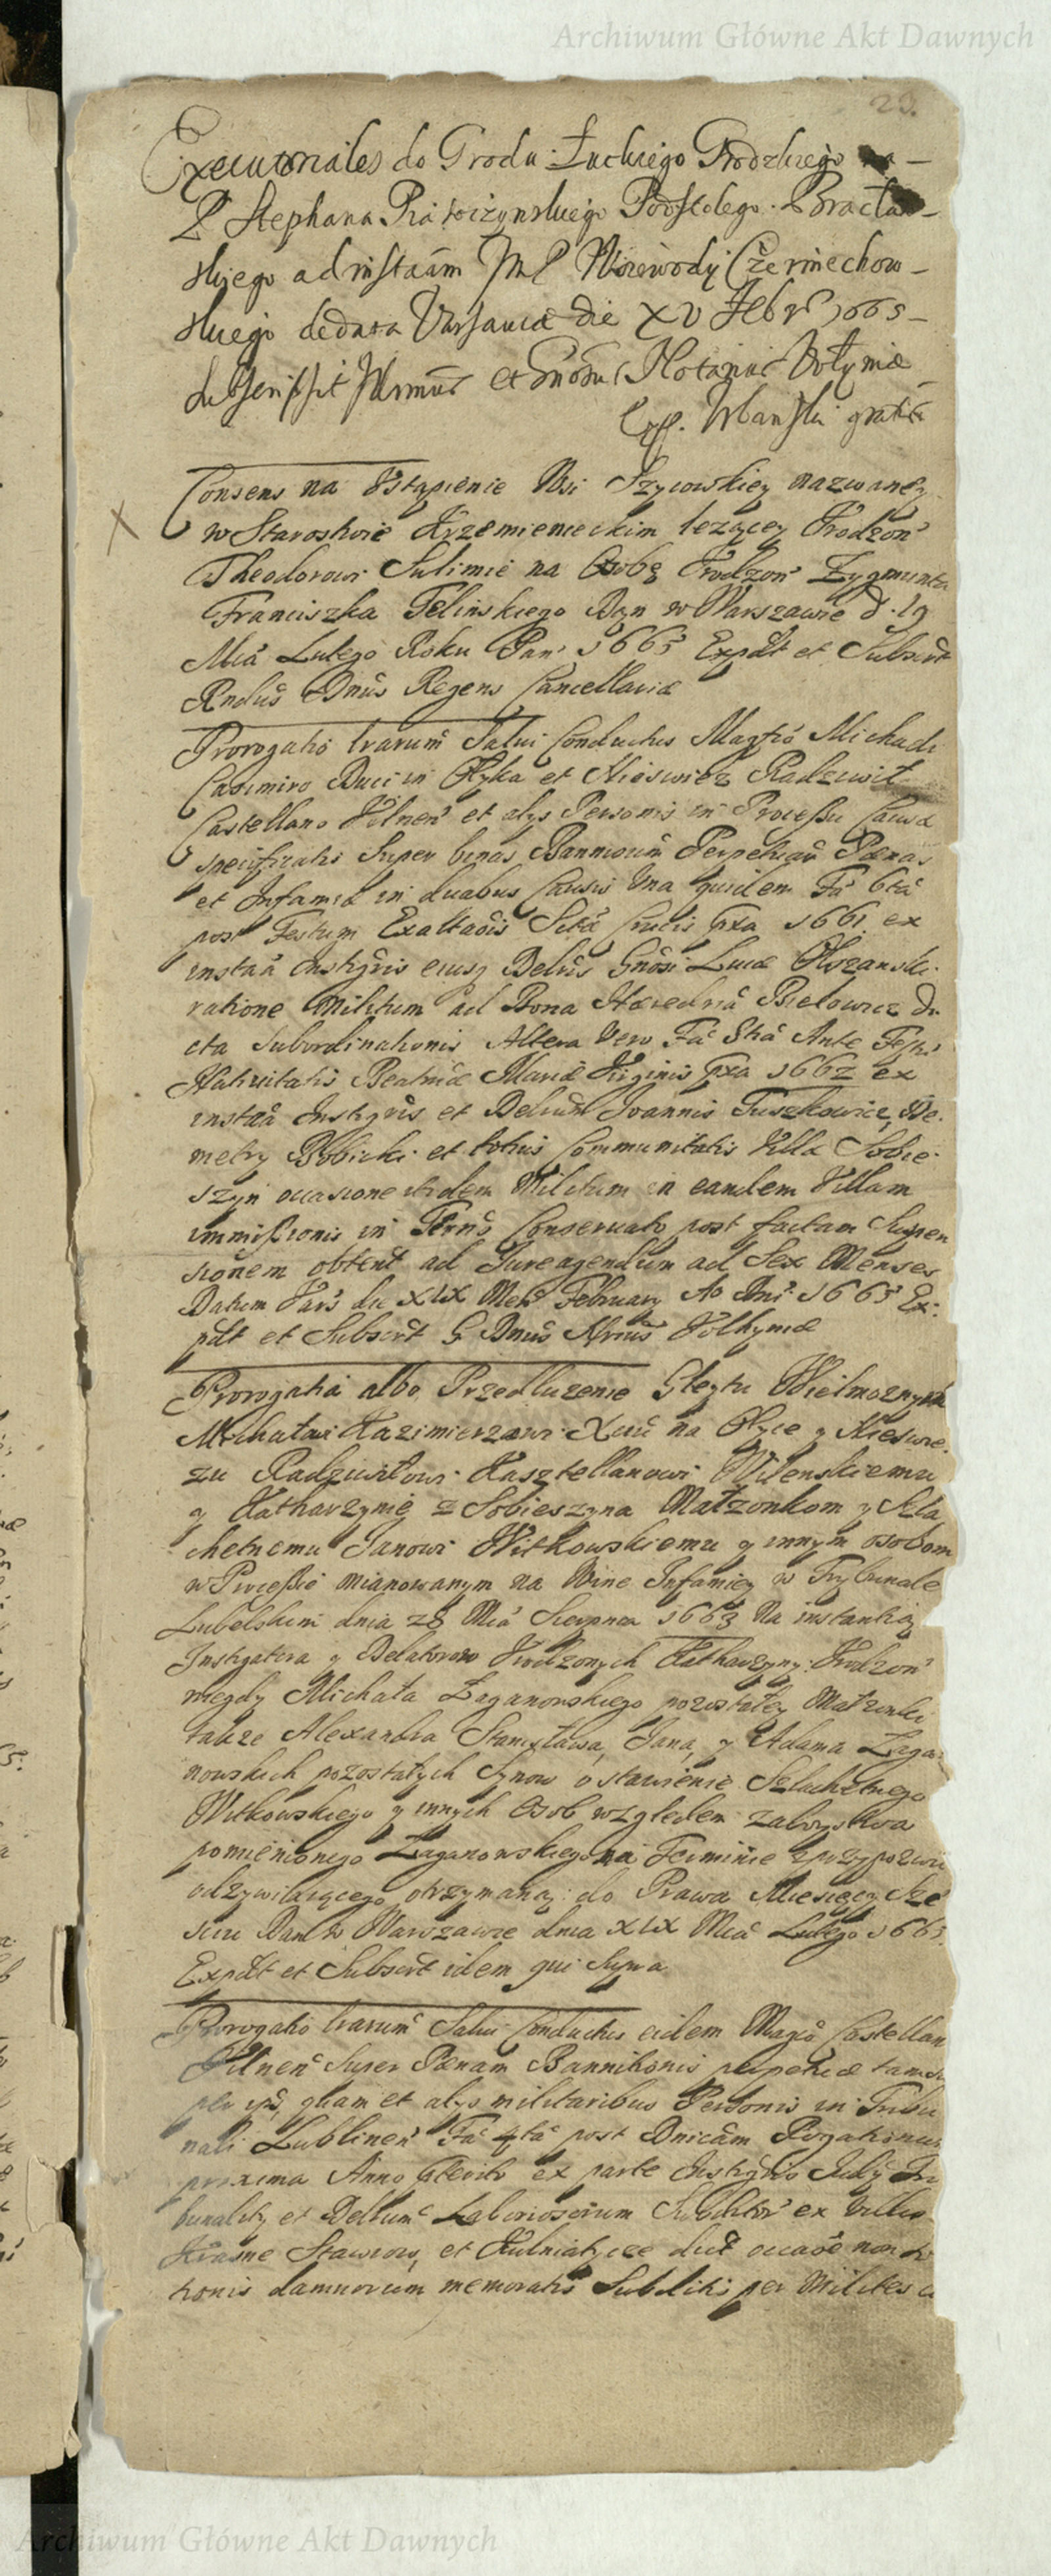 Archiwum Główne Akt Dawnych
23.
Executoriales do Grodu Łuckiego Grodzkiego na
P Stephana Podstolego Bracław-
skiego ad instãam JmP Woiewody Czerniechow-
skiego de data Varsaviæ die XV Febr 1665
subscripsit et Gnõsus Notarius Volyniæ
Exp. gratis
Consens na Ustąpienie Wsi Szycowskiey nazwaney
w Starostwie Krzemienieckim leżącey Urodzon
Theodorowi Sulimie na Osobę Urodzon Zygmunta
Franciszka Felinskiego Dan w Warszawie d. 19
Mca Lutego Roku Pan 1665 Expdt et Subscrt
Rndus Dnus Regens Cancellariæ
Prorogatio lrarum Salvi Conductus Magfco Michaeli
Casimiro Duci in Ołyka et Nieswiez Radziwił
Castellano Vilnen et alys Personis in Processu Causæ
specificatis super binas Bannitionum Perpetuar Pænas
et Infamiæ in duabus Causis Una quidem Fa 6ta
post Festum Exaltaõis Sctæ Crucis pxa 1661 ex
instãa Instigris eiusq Delris Gnosi Lucæ Olszanski
ratione Militum ad Bona Hæredria Bielowicz Di-
cta Subordinationis Altera Vero Fa 5ta Ante Festu
Nativitatis Beatmæ Mariæ Virginis pxa 1662 ex
instãa Instigris et Delrum Joannis Tuszkowicz, De-
metry Bobicki et totius Communitatis Villæ Sobie-
szyn occasione itidem Militum in eandem Villam
immissionis in Termo Conservato post factam Suspen
sionem obtent ad Jureagendum ad Sex Menses
Datum Vars die XIX Men February Ao Dni 1665 Ex-
pdt et Subscrt G Dnus Nrius Volhyniæ
Prorogatia albo Przedłuzenie Gleytu Wielmoznym
Michałowi Kazimierzowi Xciu na Ołyce y Nieswie-
zu Radziwiłowi Kasztellanowi Wilenskiemu
y Katharzynie z Sobieszyna Małzonkom y Szla
chetnemu Janowi Witkowskiemu y innym osobom
w Processie mianowanym na Winę Infamiey w Trybunale
Lubelskim dnia 28 Mca Sierpnia 1663 Na instantią
Instigatora y Delatorow Urodzonych Katharzyny Urodzon
niegdy Michała Łaganowskiego pozostałey Małzonki
takze Alexandra Stanisława, Jana, y Adama Łaga-
nowskich pozostałych Synow o stawienie Szlachetnego
Witkowskiego y innych Osob względem zaboystwa
pomienionego Łaganowskiego na Terminie z przypozwu
odzywiaiącego otrzymaną do Prawa Miesięcy Sze
sciu Dan w Warszawie dnia XIX Mca Lutego 1665.
Expdt et Subscrt idem qui Supra
Prorogatio lrarum Salvi Conductus eidem Magco Castellan
Vilnen Super Pænam Bannitionis perpetuæ tam
per quam et alys militaribus Personis in Tribu
nali Lublinen Fa 4ta post Dnicam Rogationum
proxima Anno ex parte Instigris Judy Tri
bunality et Delrum Laboriosorum Subditor ex Villis
Krasne Stawiow, et Kulniatycze dict occaõe non
tionis damnorum memoratis Subditis per Milites
Archiwum Główne Akt Dawnych